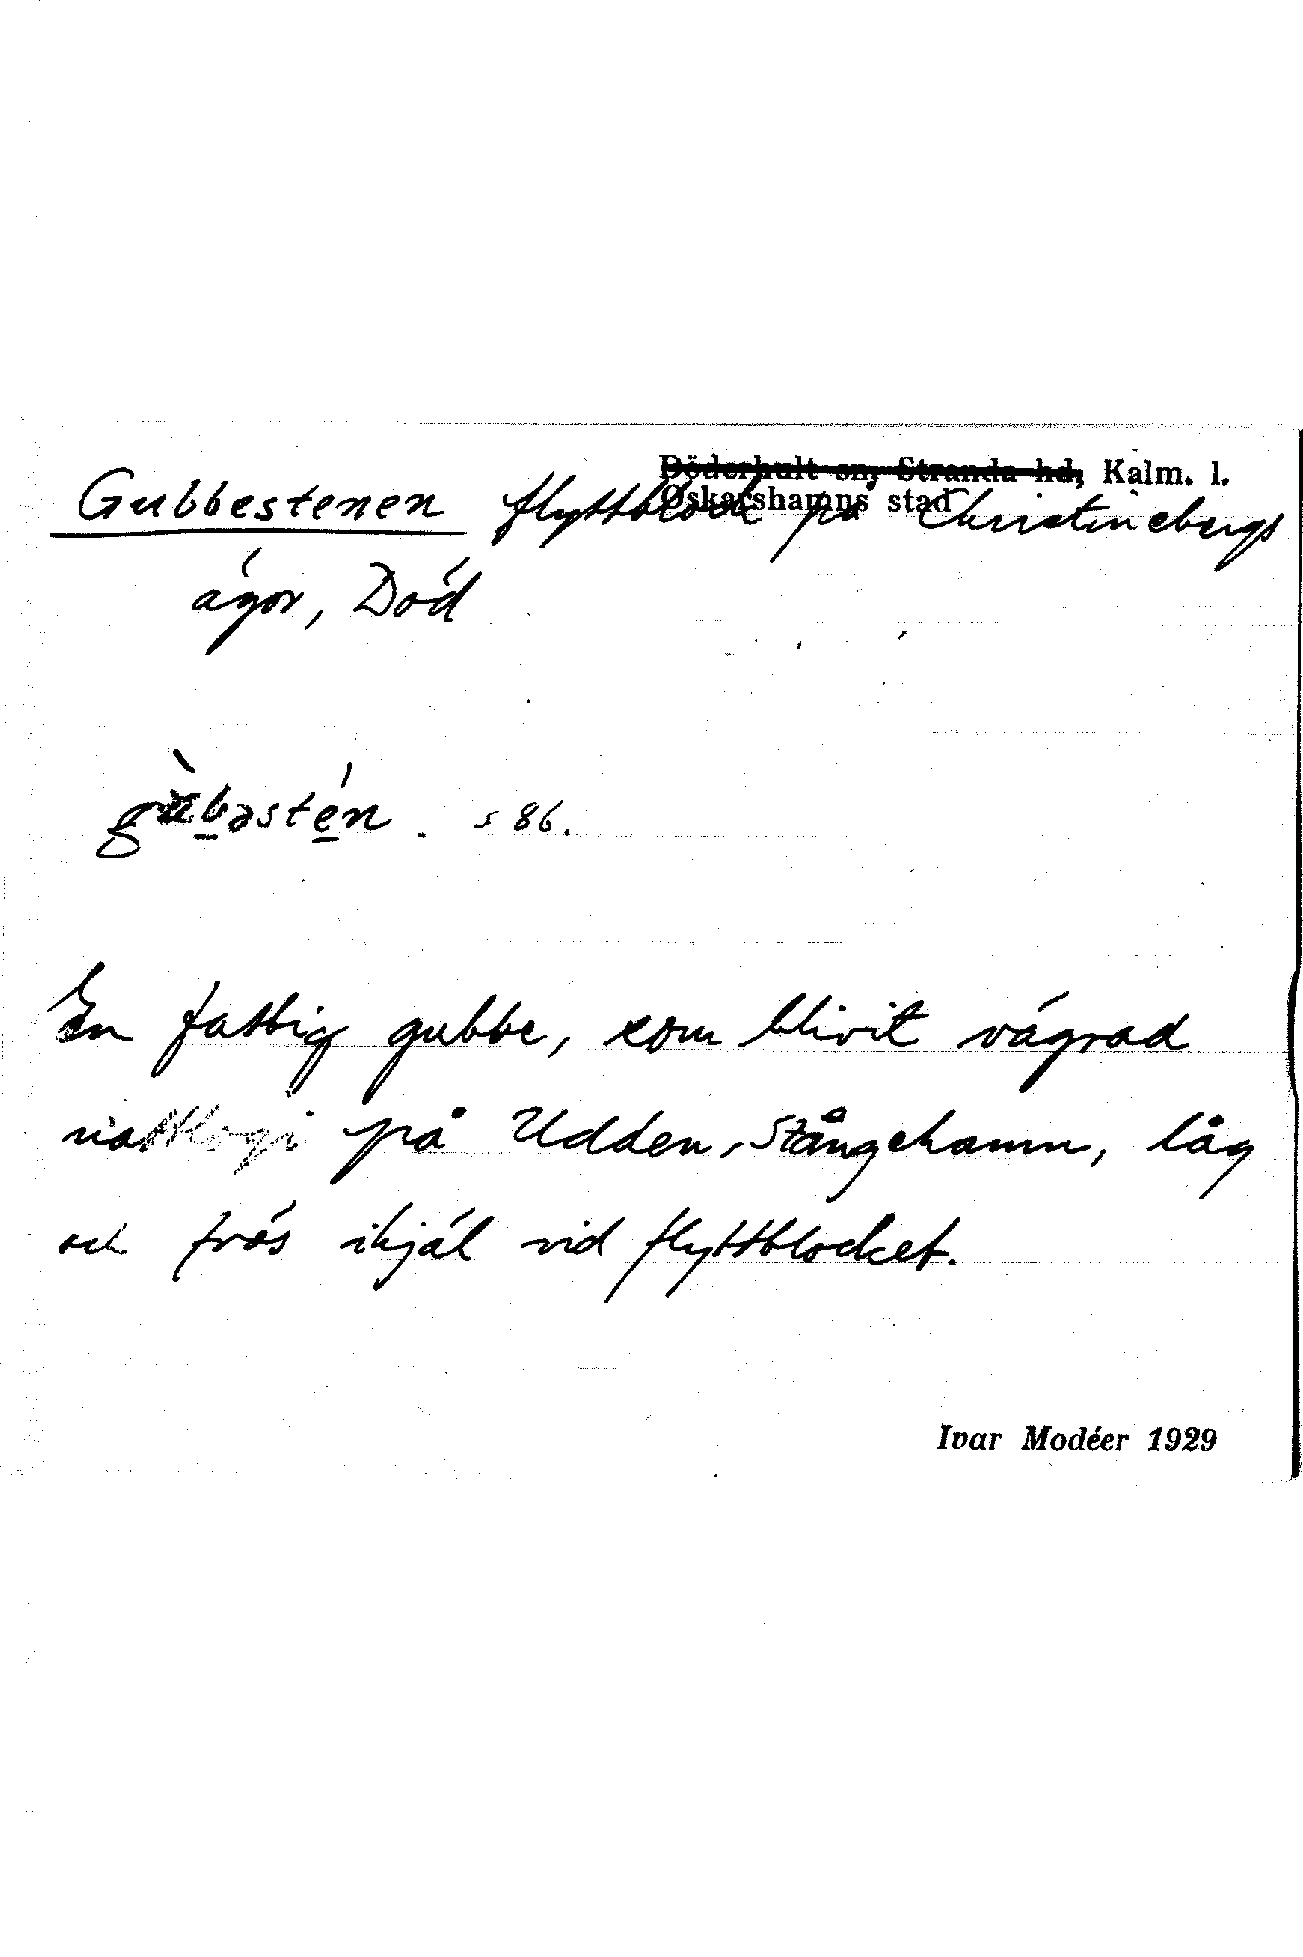 Döderhult sn, Stranda hd, Kalm. l.
Oskarshamns stad
Gubbestenen flyttblock på Christinebergs
ägor, Död
gùbəstén. s 86.
En fattig gubbe, som blivit vägrad
nattlogi på Udden, Stångehamn, låg
och frös ihjäl vid flyttblocket.
Ivar Modéer 1929